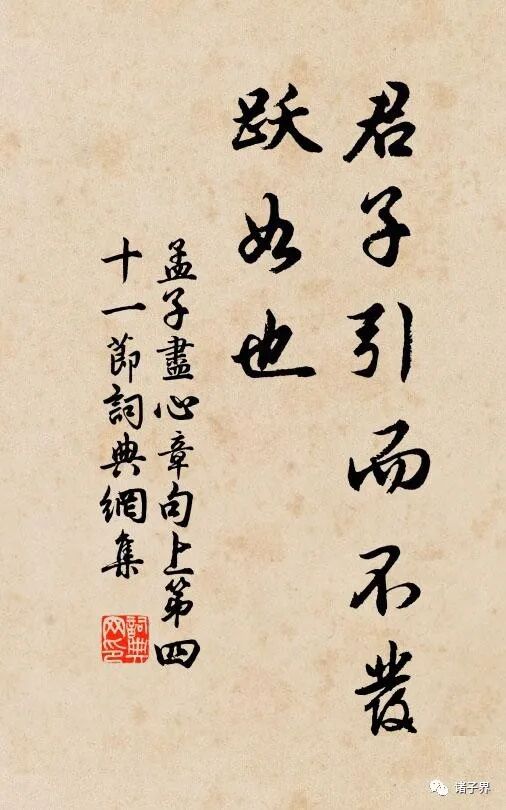 君子引而不發
跃如也
孟子盡心章句上第四
十一節詞典網集
詞典
网印
诸子界